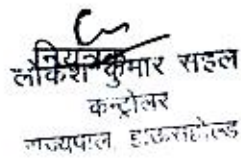 नियंत्रक
लोकेश कुमार सहल
कन्ट्रोलर
राज्यपाल हाऊसहोल्ड